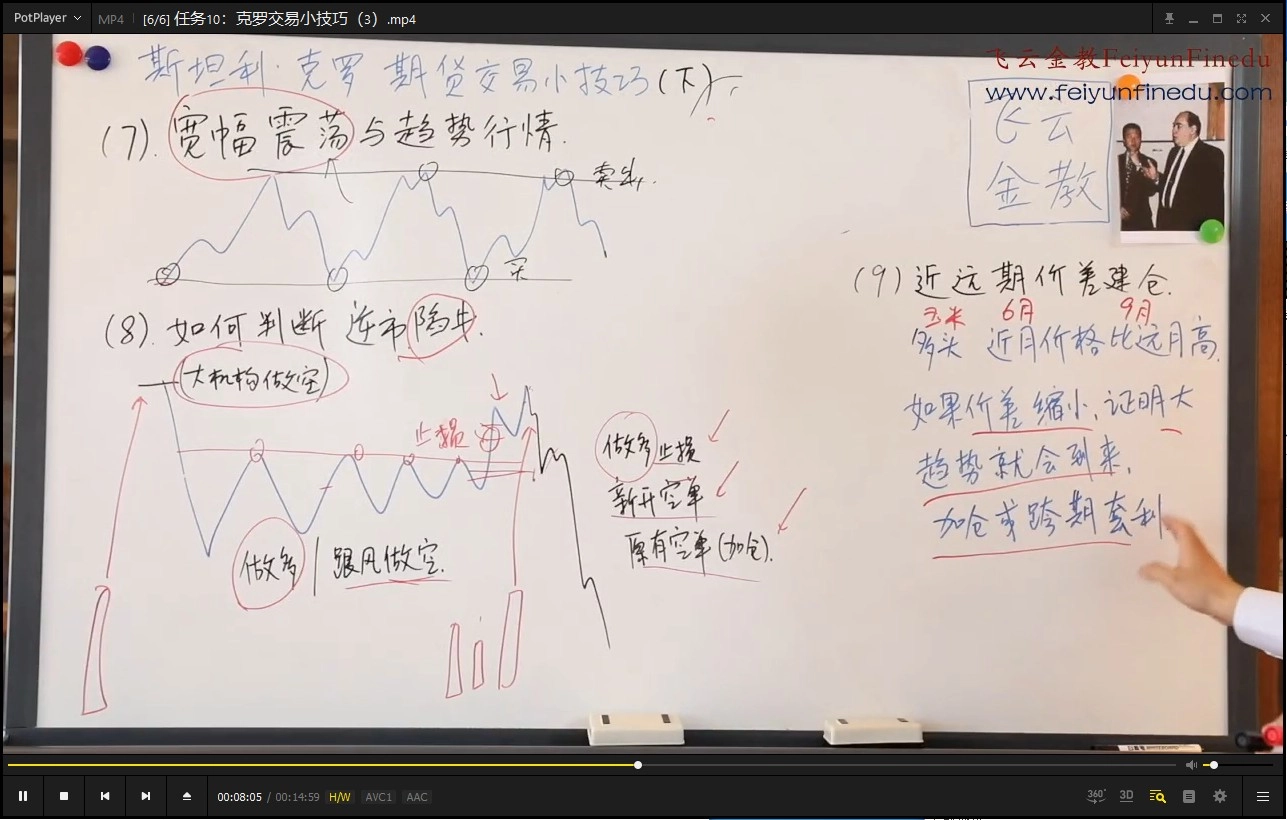 PotPlayer
MP4
[6/6] 任务10：克罗交易小技巧（3）.mp4
飞云金教FeiyunFinedu
www.feiyunfinedu.com
斯坦利·克罗 期货交易小技巧(下)
飞云
金教
(7). 宽幅震荡与趋势行情.
卖出
买
(8). 如何判断 逆市陷井.
(大机构做空)
止损
做多止损
新开空单
原有空单(加仓).
做多 | 跟风做空.
(9) 近远期价差建仓.
玉米 6月 9月
多头 近月价格比远月高.
如果价差缩小，证明大
趋势就会到来，
加仓或跨期套利
00:08:05 / 00:14:59 H/W AVC1 AAC
360° 3D